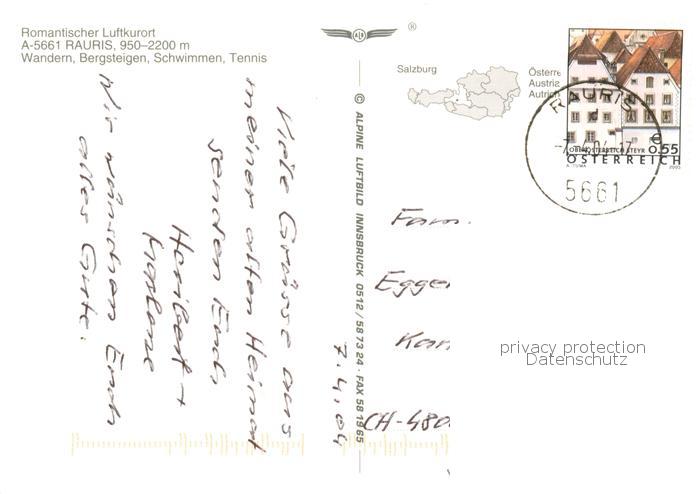 Romantischer Luftkurort
A-5661 RAURIS, 950–2200 m
Wandern, Bergsteigen, Schwimmen, Tennis
ALR
®
Salzburg
Österre
Austria
Autrich
RAURIS
d
-7.4.04-17
5661
€
OBERÖSTERREICH STEYR 0,55
ÖSTERREICH
2003
© ALPINE LUFTBILD INNSBRUCK 0512 / 58 73 24 · FAX 58 19 65
7.4.04
Viele Grüsse aus
meiner alten Heimat
senden Euch
Heribert +
Wir wünschen Euch
alles Gute.
Fam.
Egge
Kan
CH-480
privacy protection
Datenschutz